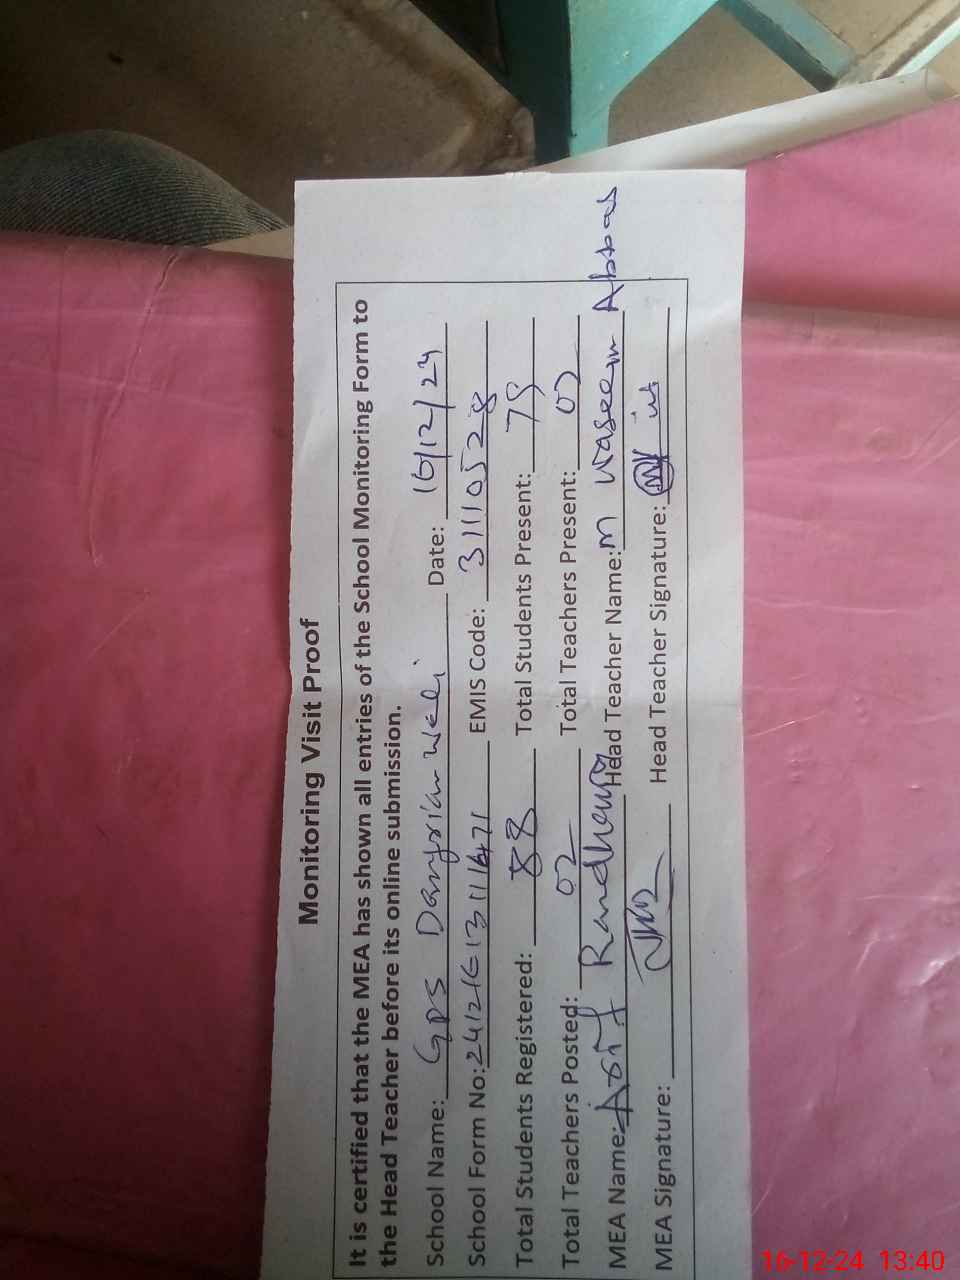 Monitoring Visit Proof
It is certified that the MEA has shown all entries of the School Monitoring Form to
the Head Teacher before its online submission.
School Name: GPS Date: 16/12/24
School Form No: EMIS Code: 31110528
Total Students Registered: 88 Total Students Present:
Total Teachers Posted: 02 Total Teachers Present: 02
MEA Name: Asif Randhawa Head Teacher Name: M Waseem Abbas
MEA Signature: Head Teacher Signature:
16-12-24 13:40